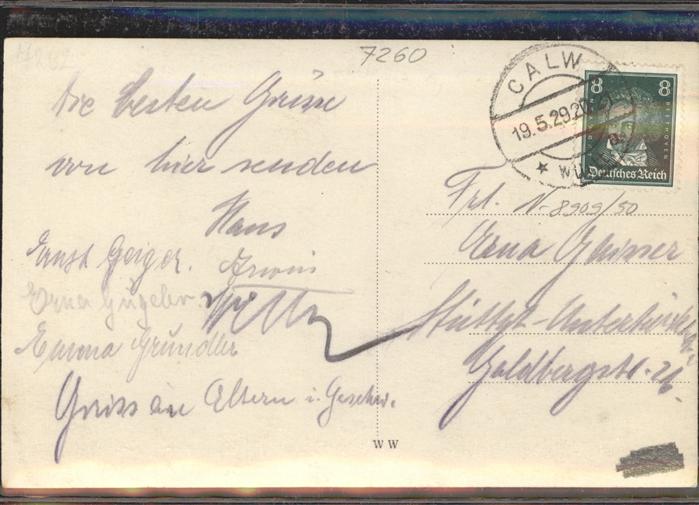 7260
Die besten Grüsse
von hier senden
Hans
Ernst Geiger. Erwin
Erna Gugeler.
Emma Gründler
Gruss an Eltern u. Geschw.
WW
CALW
19.5.29.20
8 8
BEETHOVEN
Deutsches Reich
N-8909/50
Frl.
Erna
Stuttgt-Untertürkheim
Goldbergstr. 21.